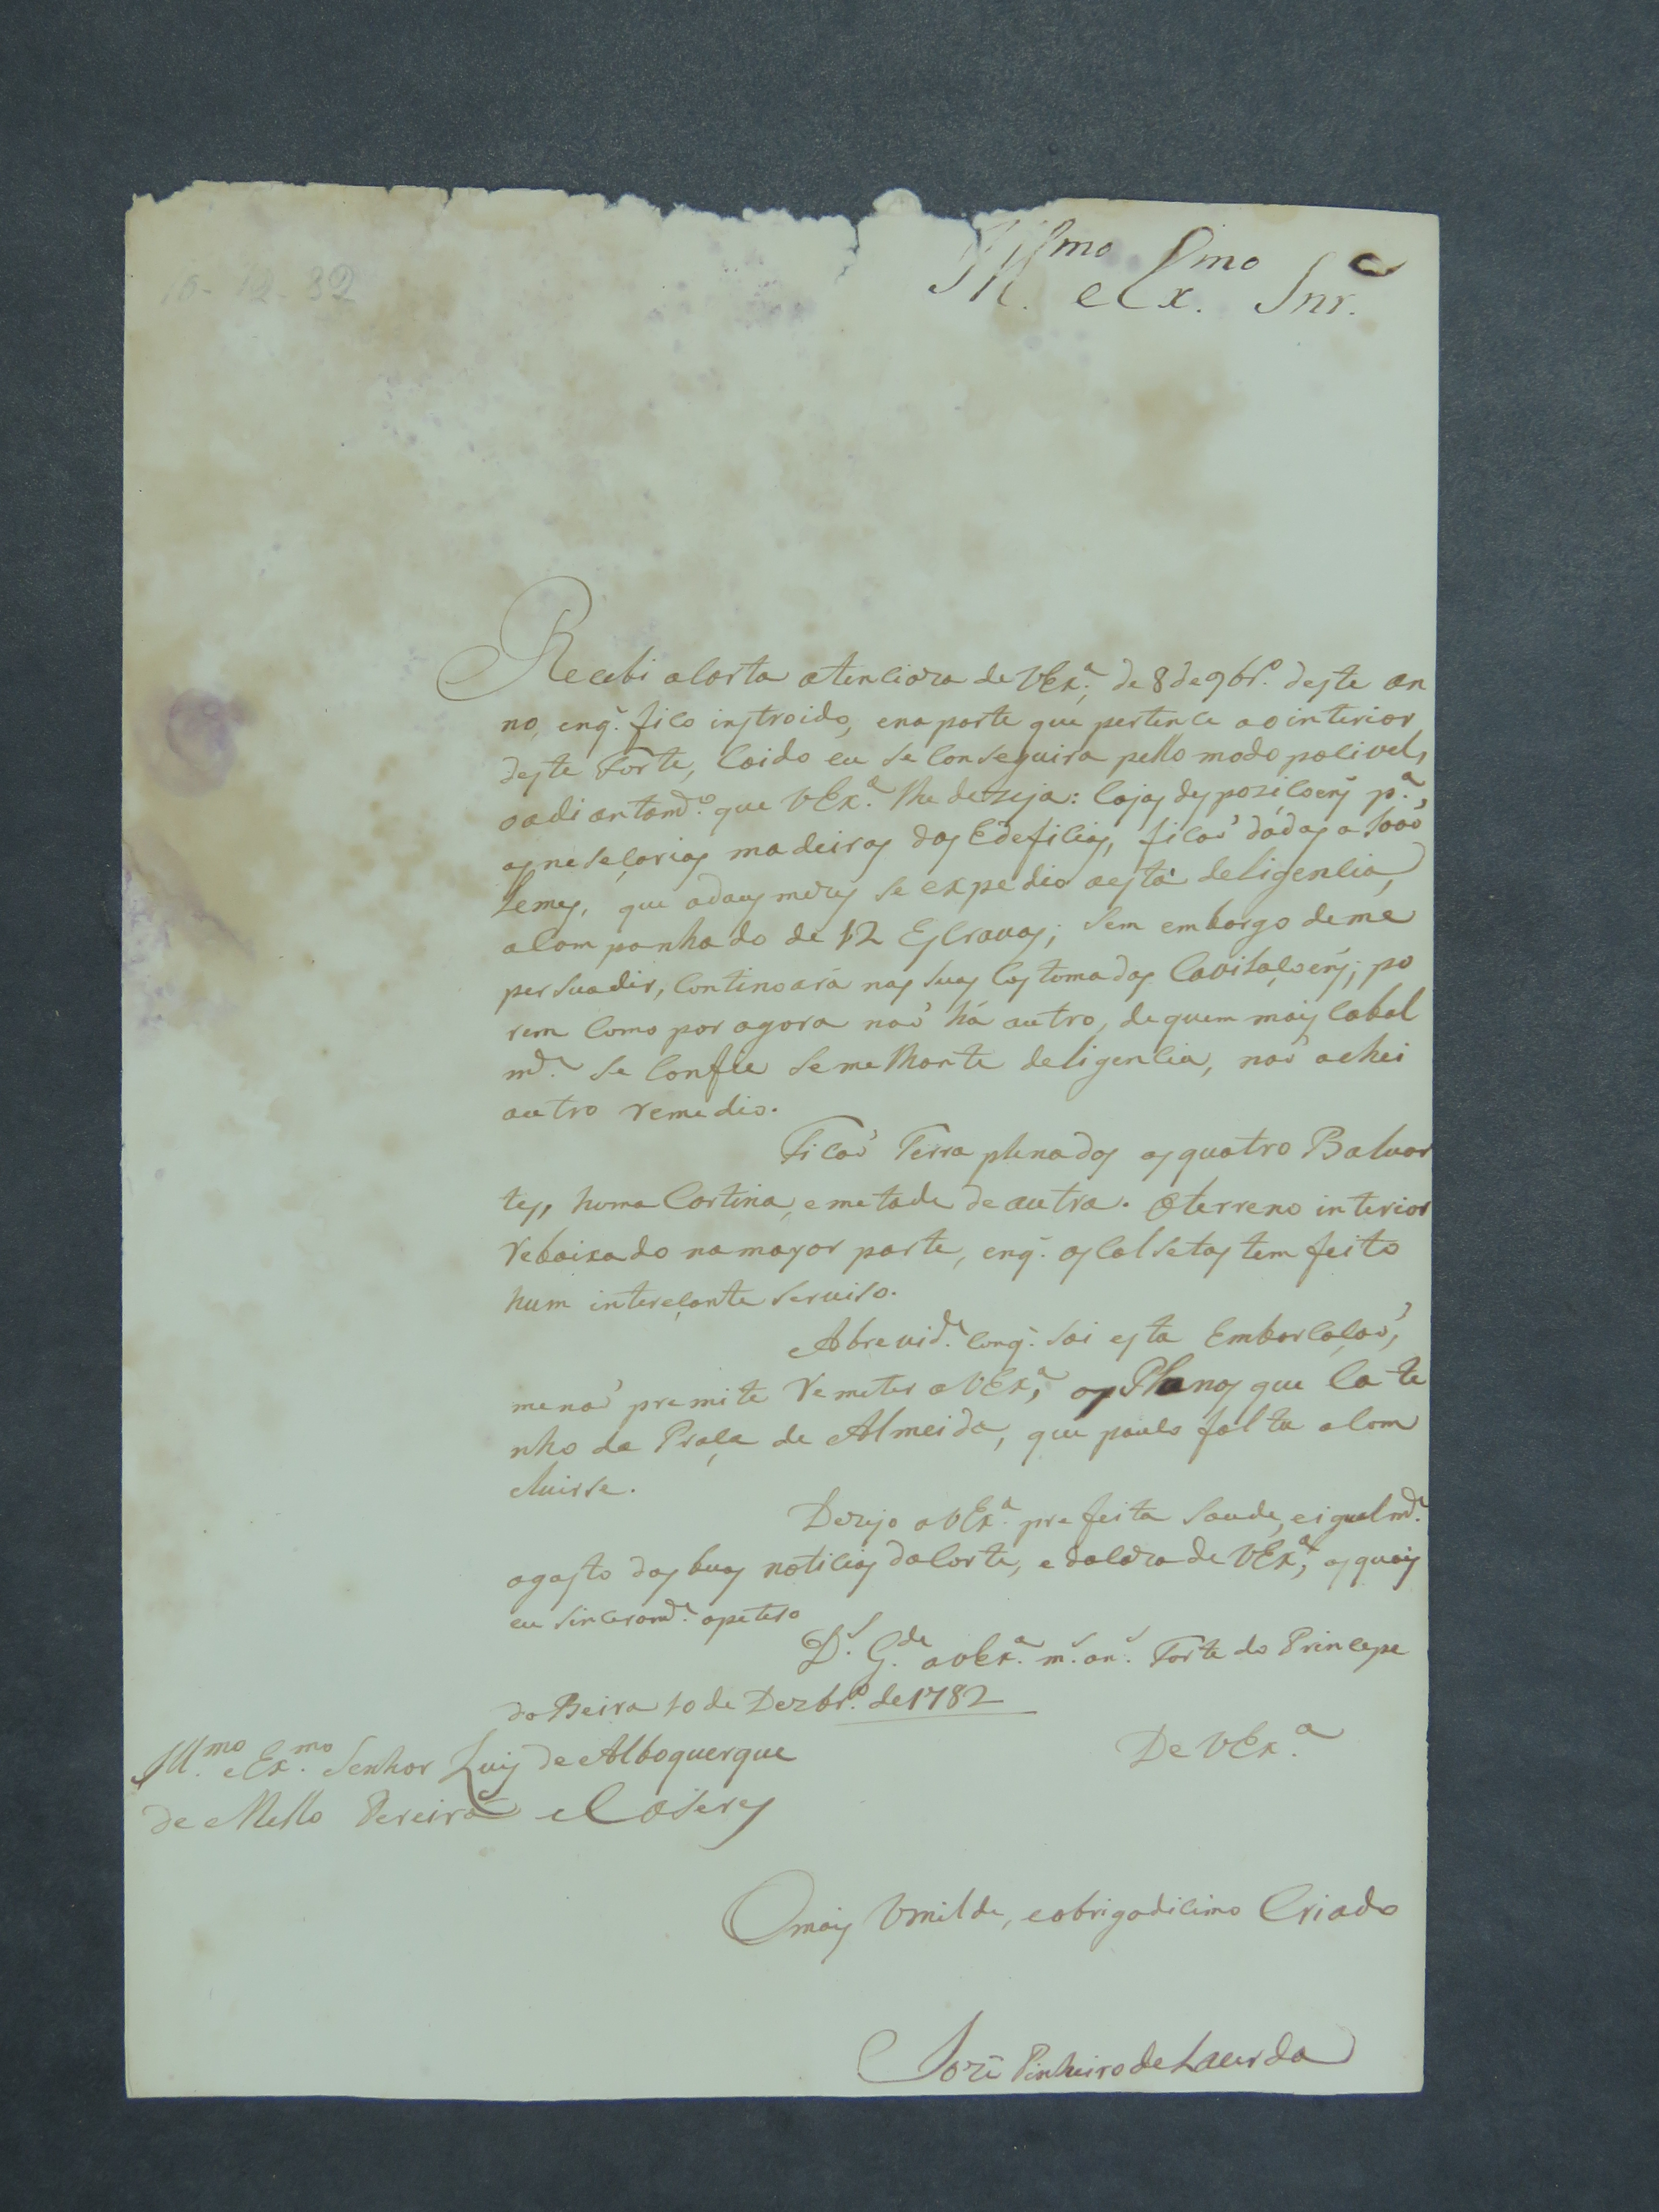 10-12-82
Ill.mo e Ex.mo Snr.
Recebi a Carta atencioza de VEx.ª, de 8 de 9br.º deste an
no, enq̃. fico instroido, e na parte que pertence ao interior
deste Forte, Coido eu se Conseguira pello modo pocivel,
o adiantam.to que VEx.ª lhe dezeja: Cajas despoziçoens p.ª
as neseçarias madeiras dos Edeficios, ficaõ dádas a Joaõ
Lemes, que a dous mezes se expedio a esta deligencia,
acompanhado de 12 Escravos; sem embargo de me
persuadir, Continoará nas suas Costomadas Cavilaçoens; po
rem Como por agora naõ há outro, de quem mais Cabal
m.te se Confie semelhante deligencia, naõ achei
outro remedio.
Ficaõ Terraplenados os quatro Baluar
tes, huma Cortina, e metade de outra. O terreno interior
rebaixado na mayor parte, enq̃. os Calsetas tem feito
humntereçante serviso.
A brevid.e Conq̃. sai esta Embarcaçaõ,
me naõ premite remeter a VEx.ª, os Planos que Ca te
nho da Praça de Almeida, que pouco falta a Com
cluirse.
Dezejo a VEx.ª prefeita Saude, e igualm.te
o gosto das buas noticias da Corte, e da Caza de VEx.ª, as quais
eu sinceram.te apeteso
D.s G.de a VEx.ª m.s an.s Forte do Princepe
da Beira 10 de Dezbr.º de 1782
De VEx.ª
Ill.mo e Ex.mo Senhor Luis de Alboquerque
de Mello Pereira e Caseres
O mais Vmilde, e obrigadicimo Criado
Jozé Pinheiro de Lacerda